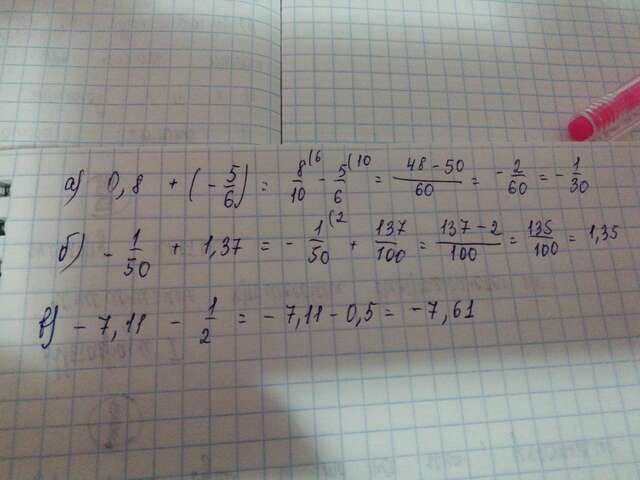 а) 0,8 + (- 5/6) = 8/10 (6 - 5/6 (10 = 48 - 50/60 = - 2/60 = - 1/30
б) - 1/50 + 1,37 = - 1/50 (2 + 137/100 = 137 - 2/100 = 135/100 = 1,35
в) - 7,11 - 1/2 = - 7,11 - 0,5 = - 7,61